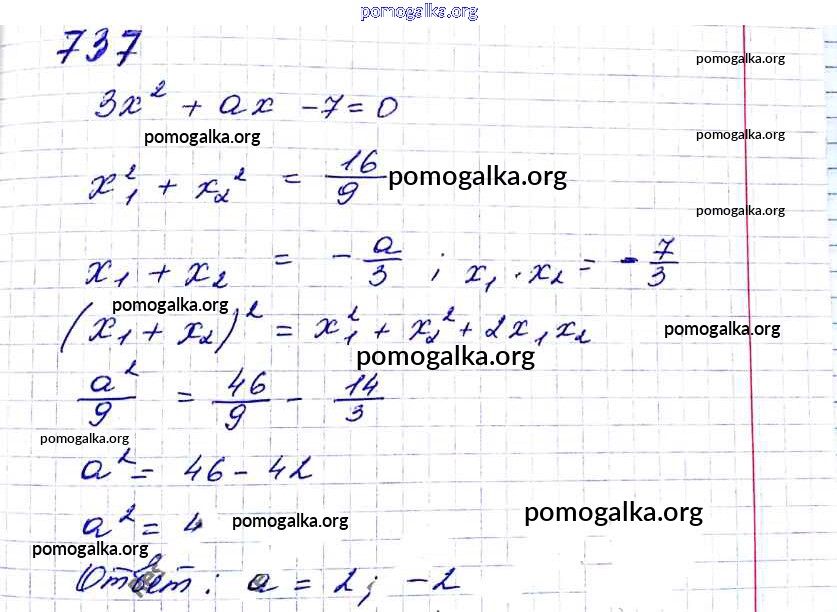 pomogalka.org
737
pomogalka.org
3x² + ax - 7 = 0
pomogalka.org pomogalka.org
x₁² + x₂² = 16/9 pomogalka.org
pomogalka.org
x₁ + x₂ = - a/3 ; x₁ · x₂ = - 7/3
pomogalka.org
(x₁ + x₂)² = x₁² + x₂² + 2x₁x₂ pomogalka.org
pomogalka.org
a²/9 = 46/9 - 14/3
pomogalka.org
a² = 46 - 42
a² = 4 pomogalka.org pomogalka.org
pomogalka.org
Ответ: a = 2; -2